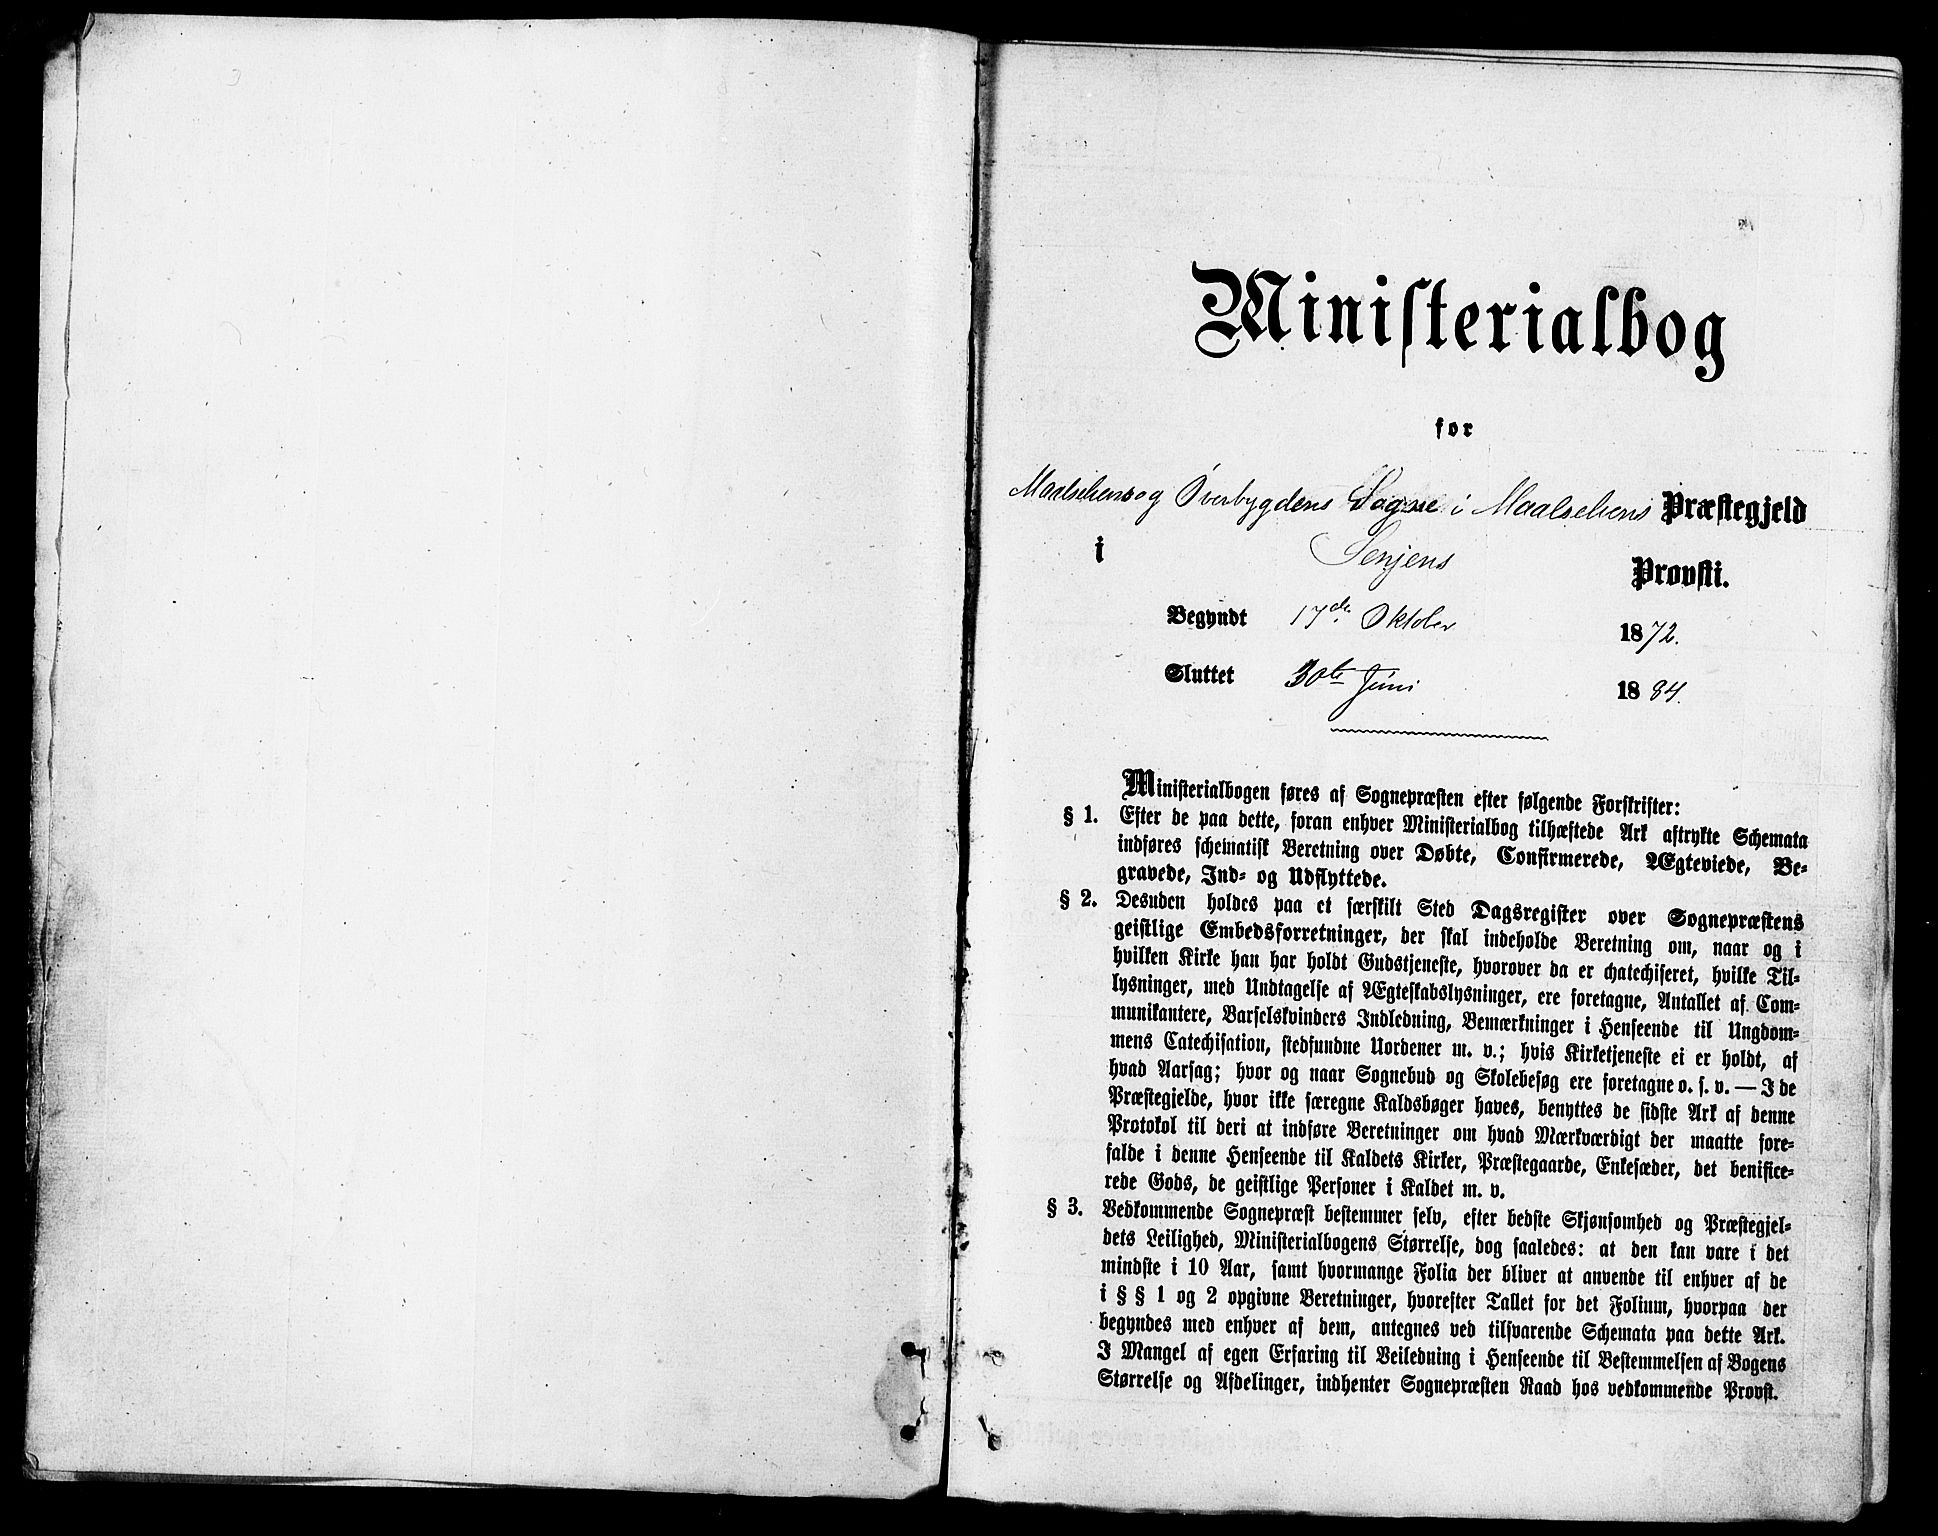 Ministerialbog
for
Maalselvens og Øverbygdens Sogne i Maalselvens Præstegjeld
i Senjens Provsti.
Begyndt 17de Oktober 1872.
Sluttet 30te Juni 1884.
Ministerialbogen føres af Sognepræsten efter følgende Forskrifter:
§ 1. Efter de paa dette, foran enhver Ministerialbog tilhæftede Ark aftrykte Schemata
indføres schematisk Beretning over Døbte, Confirmerede, Ægteviede, Be-
gravede, Ind- og Udflyttede.
§ 2. Desuden holdes paa et særskilt Sted Dagsregister over Sognepræstens
geistlige Embedsforretninger, der skal indeholde Beretning om, naar og i
hvilken Kirke han har holdt Gudstjeneste, hvorover da er chatechiseret, hvilke Til-
lysninger, med Undtagelse af Ægteskabslysninger, ere foretagne, Antallet af Com-
munikantere, Barselskvinders Indledning, Bemærkninger i Henseende til Ungdom-
mens Catechisation, stedfundne Uordener m. v.; hvis Kirketjeneste ei er holdt, af
hvad Aarsag; hvor og naar Sognebud og Skolebesøg ere foretagne o. s. v. — I de
Præstegjelde, hvor ikke særegne Kaldsbøger haves, benyttes de sidste Ark af denne
Protokol til deri at indføre Beretninger om hvad Mærkværdigt der maatte fore-
falde i denne Henseende til Kaldets Kirker, Præstegaarde, Enkesæder, det benifice-
rede Gods, de geistlige Personer i Kaldet m. v.
§ 3. Vedkommende Sognepræst bestemmer selv, efter bedste Skjønsomhed og Præstegjel-
dets Leilighed, Ministerialbogens Størrelse, dog saaledes: at den kan vare i det
mindste i 10 Aar, samt hvormange Folia der bliver at anvende til enhver af de
i § § 1 og 2 opgivne Beretninger, hvorefter Tallet for det Folium, hvorpaa der
begyndes med enhver af dem, antegnes ved tilsvarende Schemata paa dette Ark.
I Mangel af egen Erfaring til Veiledning i Henseende til Bestemmelsen af Bogens
Størrelse og Afdelinger, indhenter Sognepræsten Raad hos vedkommende Provst.